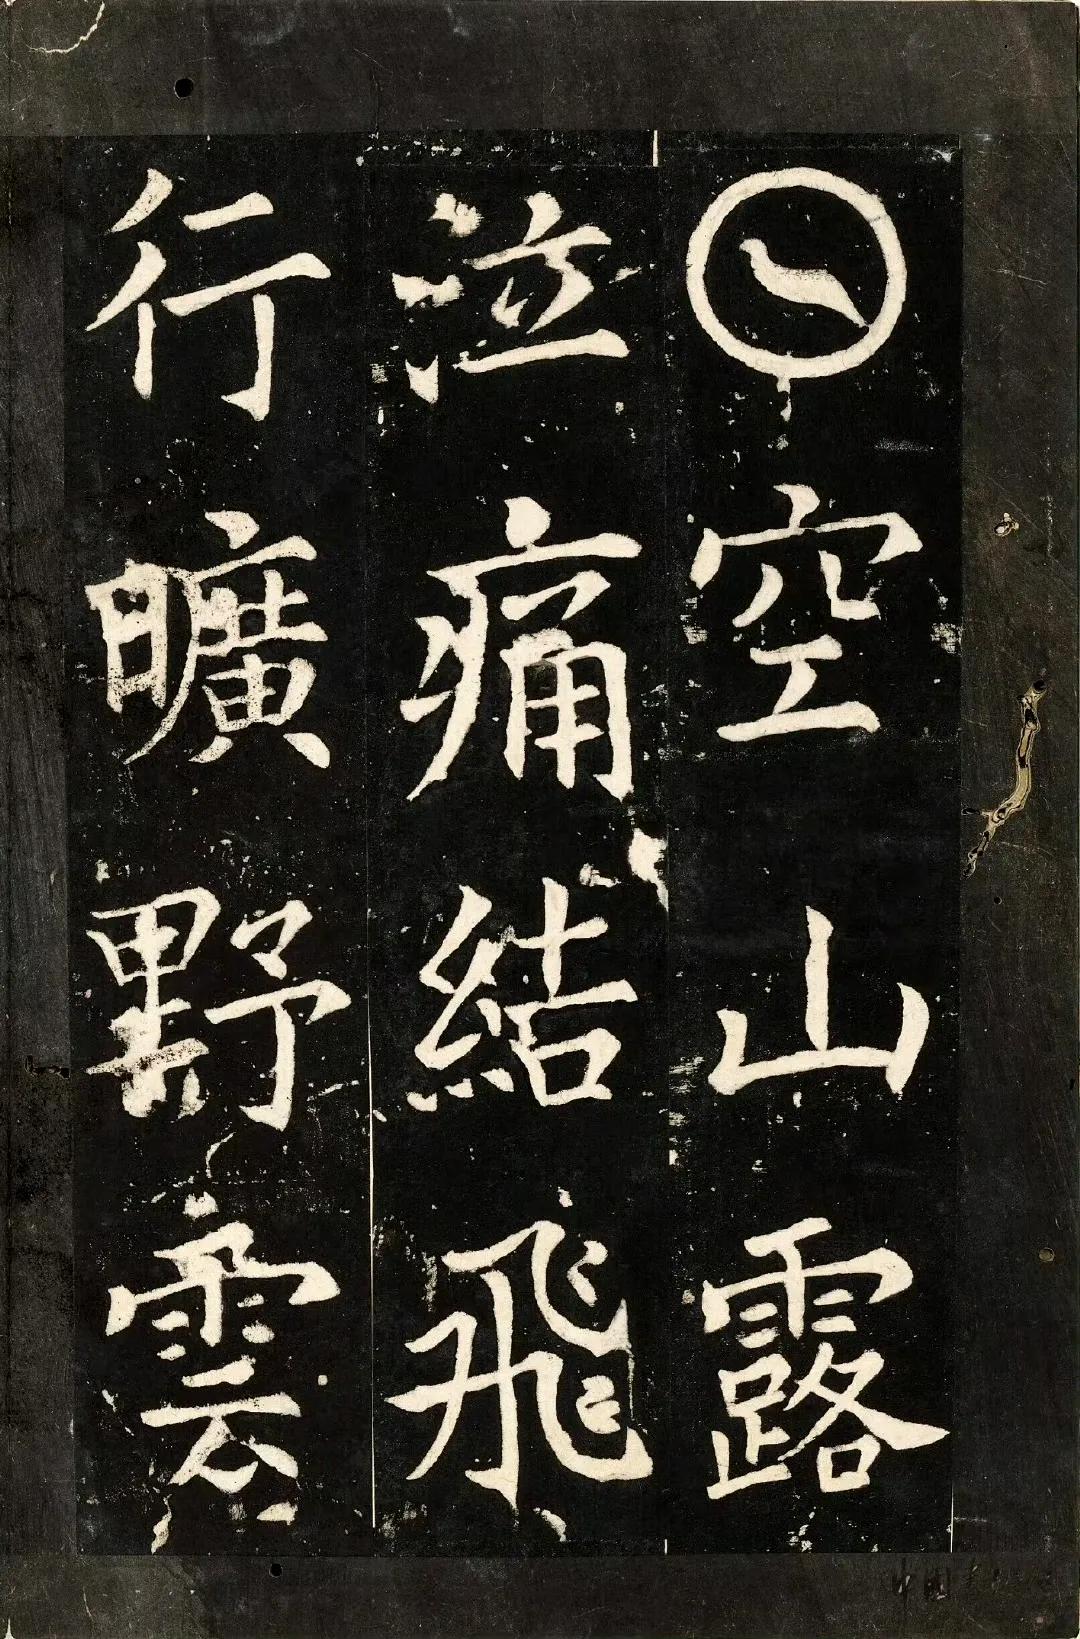 𡆠空山露
泣痛結飛
行曠野雲